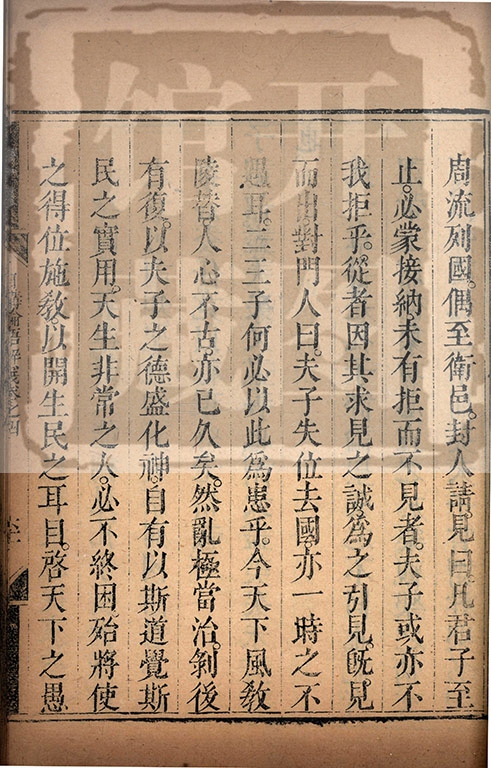 周流列國。偶至衛邑。封人請見曰。凡君子至
止。必蒙接納。未有拒而不見者。夫子或亦不
我拒乎。從者因其求見之誠。為之引見。旣見
而出。對門人曰。夫子失位去國。亦一時之不
遇耳。二三子何必以此為患乎。今天下風敎
陵替。人心不古。亦已久矣。然亂極當治。剝後
有復。以夫子之德盛化神。自有以斯道覺斯
民之實用。天生非常之人。必不終困。殆將使
之得位施敎。以開生民之耳目。啓天下之愚